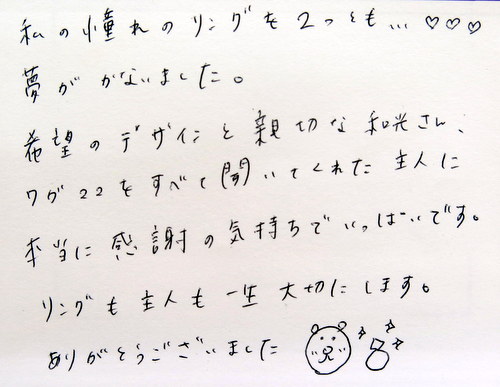 私の憧れのリングを2つとも…♡♡♡
夢がかないました。
希望のデザインと親切な和光さん、
ワガママをすべて聞いてくれた主人に
本当に感謝の気持ちでいっぱいです。
リングも主人も一生大切にします。
ありがとうございました